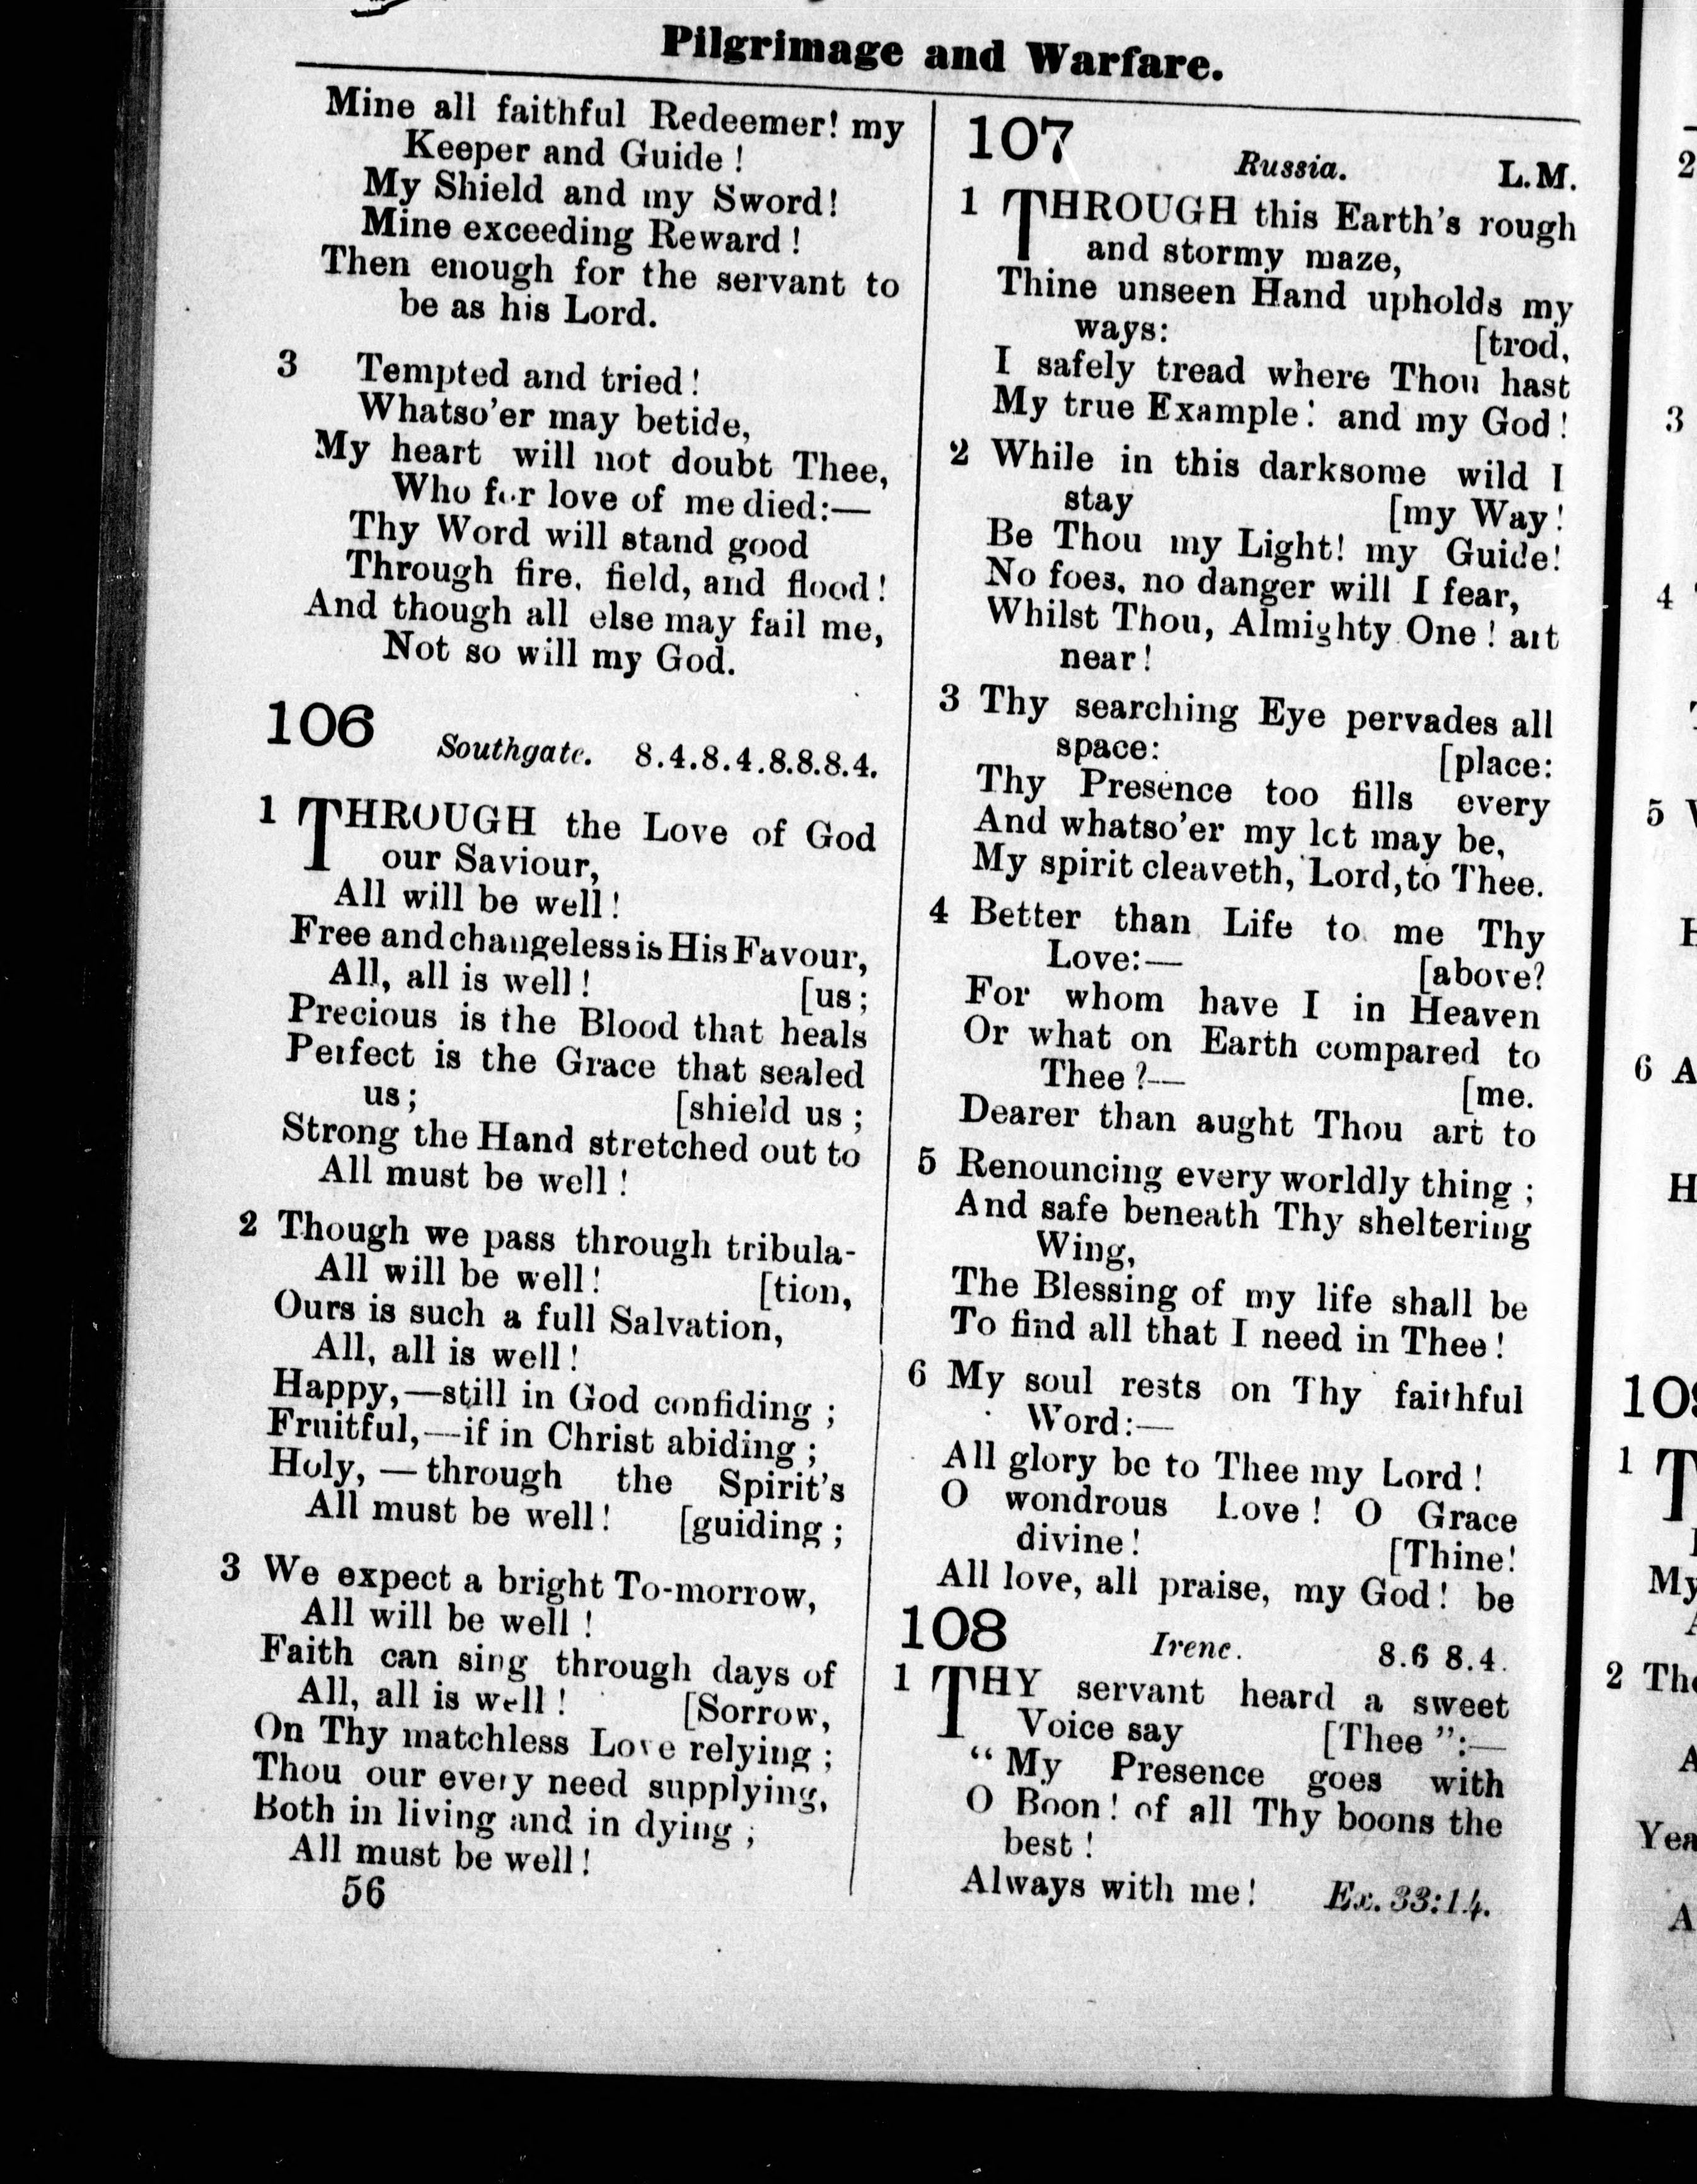 Pilgrimage and Warfare.
Mine all faithful Redeemer! my
Keeper and Guide!
My Shield and my Sword!
Mine exceeding Reward!
Then enough for the servant to
be as his Lord.
3 Tempted and tried!
Whatso'er may betide,
My heart will not doubt Thee,
Who for love of me died:—
Thy Word will stand good
Through fire, field, and flood!
And though all else may fail me,
Not so will my God.
106
Southgate. 8.4.8.4.8.8.8.4.
1 THROUGH the Love of God
our Saviour,
All will be well!
Free and changeless is His Favour,
All, all is well! [us;
Precious is the Blood that heals
Perfect is the Grace that sealed
us; [shield us;
Strong the Hand stretched out to
All must be well!
2 Though we pass through tribula-
All will be well! [tion,
Ours is such a full Salvation,
All, all is well!
Happy,—still in God confiding;
Fruitful,—if in Christ abiding;
Holy,—through the Spirit's
All must be well! [guiding;
3 We expect a bright To-morrow,
All will be well!
Faith can sing through days of
All, all is well! [Sorrow,
On Thy matchless Love relying;
Thou our every need supplying,
Both in living and in dying;
All must be well!
56
107
Russia. L.M.
1 THROUGH this Earth's rough
and stormy maze,
Thine unseen Hand upholds my
ways: [trod,
I safely tread where Thou hast
My true Example! and my God!
2 While in this darksome wild I
stay [my Way!
Be Thou my Light! my Guide!
No foes, no danger will I fear,
Whilst Thou, Almighty One! art
near!
3 Thy searching Eye pervades all
space: [place:
Thy Presence too fills every
And whatso'er my lot may be,
My spirit cleaveth, Lord, to Thee.
4 Better than Life to me Thy
Love:— [above?
For whom have I in Heaven
Or what on Earth compared to
Thee?— [me.
Dearer than aught Thou art to
5 Renouncing every worldly thing;
And safe beneath Thy sheltering
Wing,
The Blessing of my life shall be
To find all that I need in Thee!
6 My soul rests on Thy faithful
Word:—
All glory be to Thee my Lord!
O wondrous Love! O Grace
divine! [Thine!
All love, all praise, my God! be
108
Irene. 8.6 8.4.
1 THY servant heard a sweet
Voice say [Thee":—
"My Presence goes with
O Boon! of all Thy boons the
best!
Always with me! Ex. 33:14.
2
3
4
5
6
1
My
2